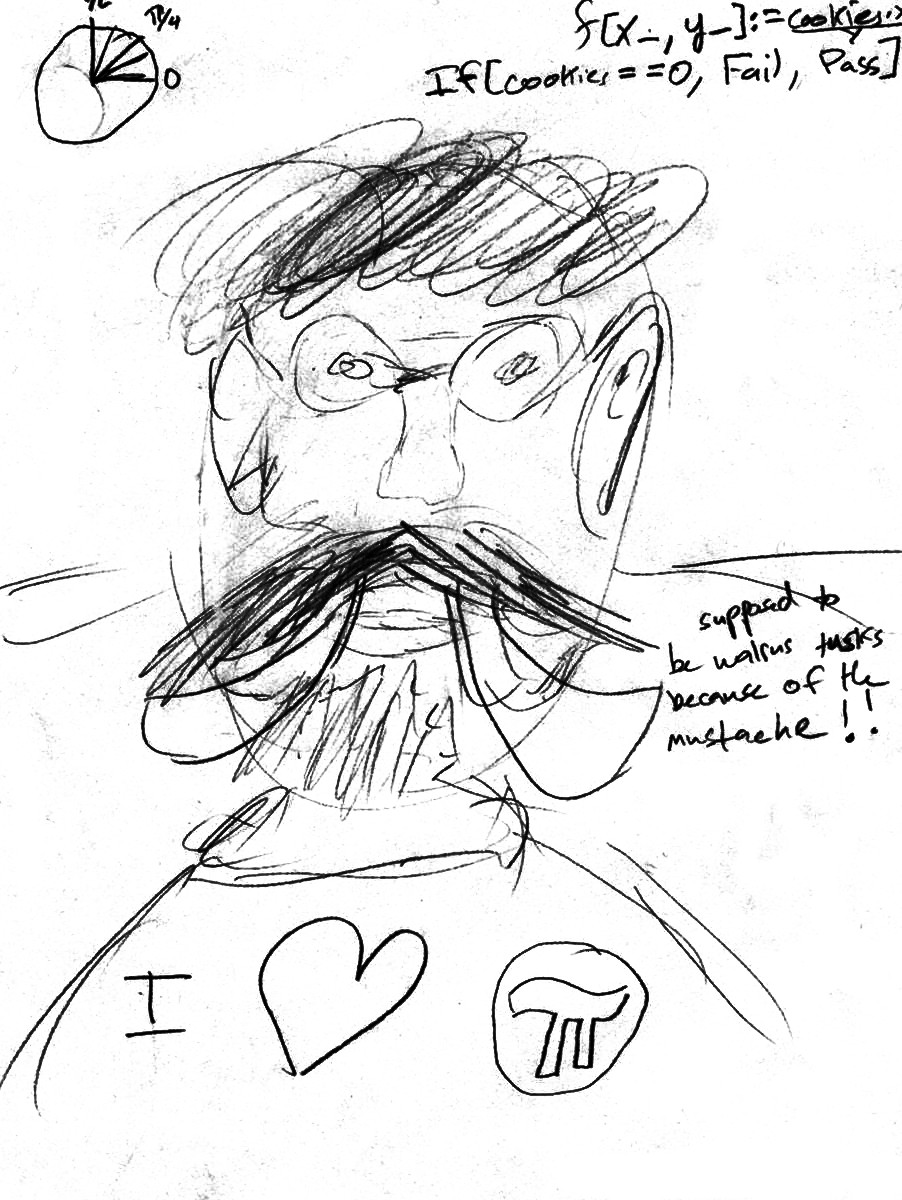 π/4
0
f[x_, y_]:=cookies
If[cookies==0, Fail, Pass]
supposed to
be walrus tusks
because of the
mustache!!
I
π